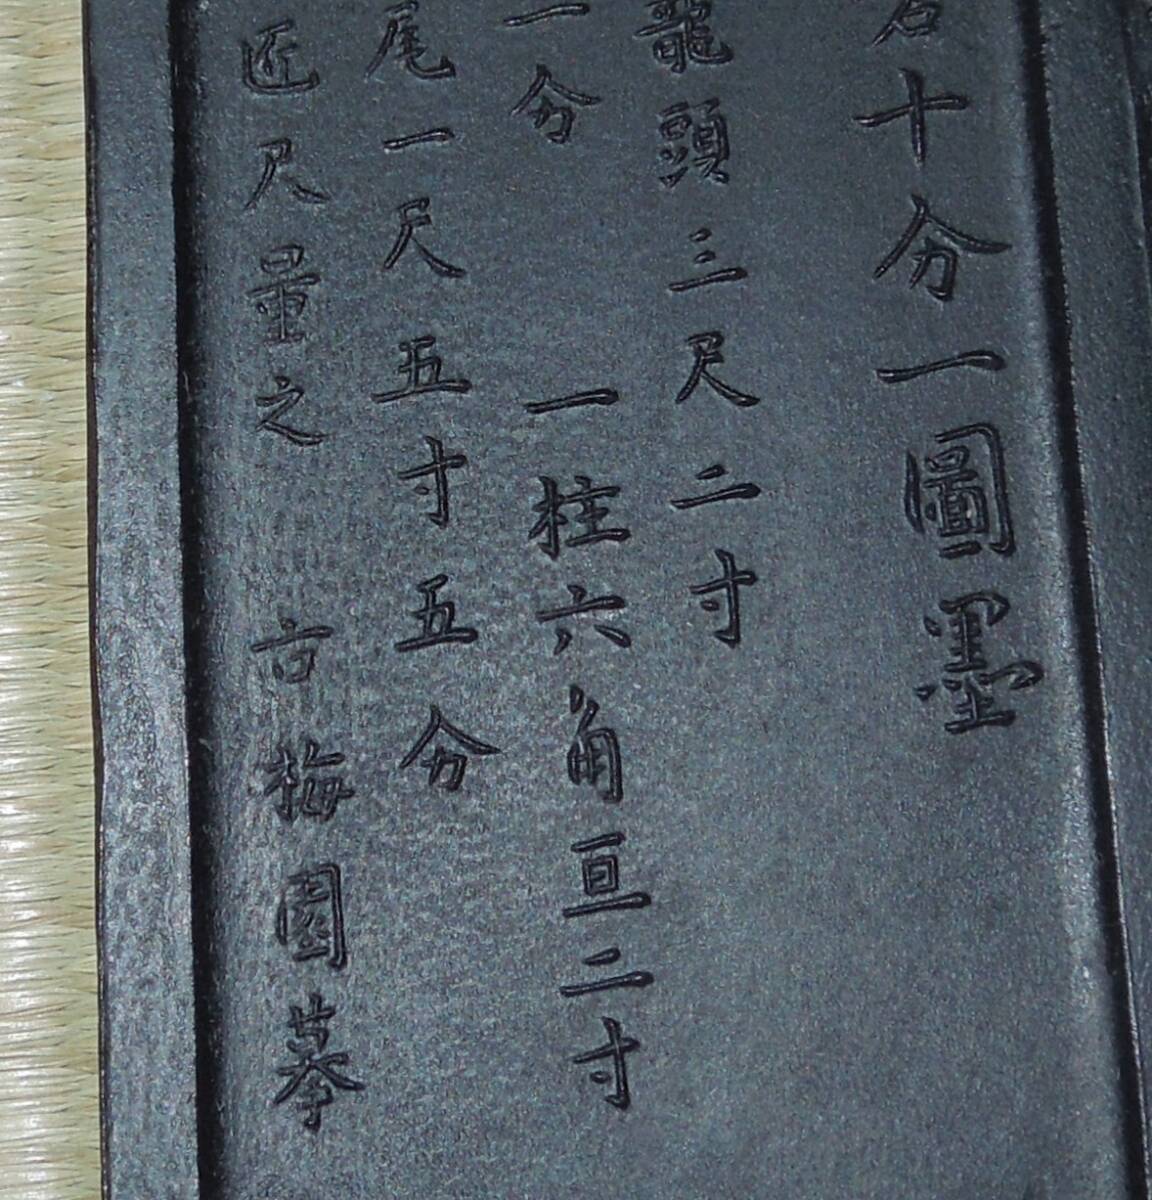 若十分一圖墨
龍頭三尺二寸
一分　一柱六角亘二寸
尾一尺五寸五分
匠尺量之　古梅園摹